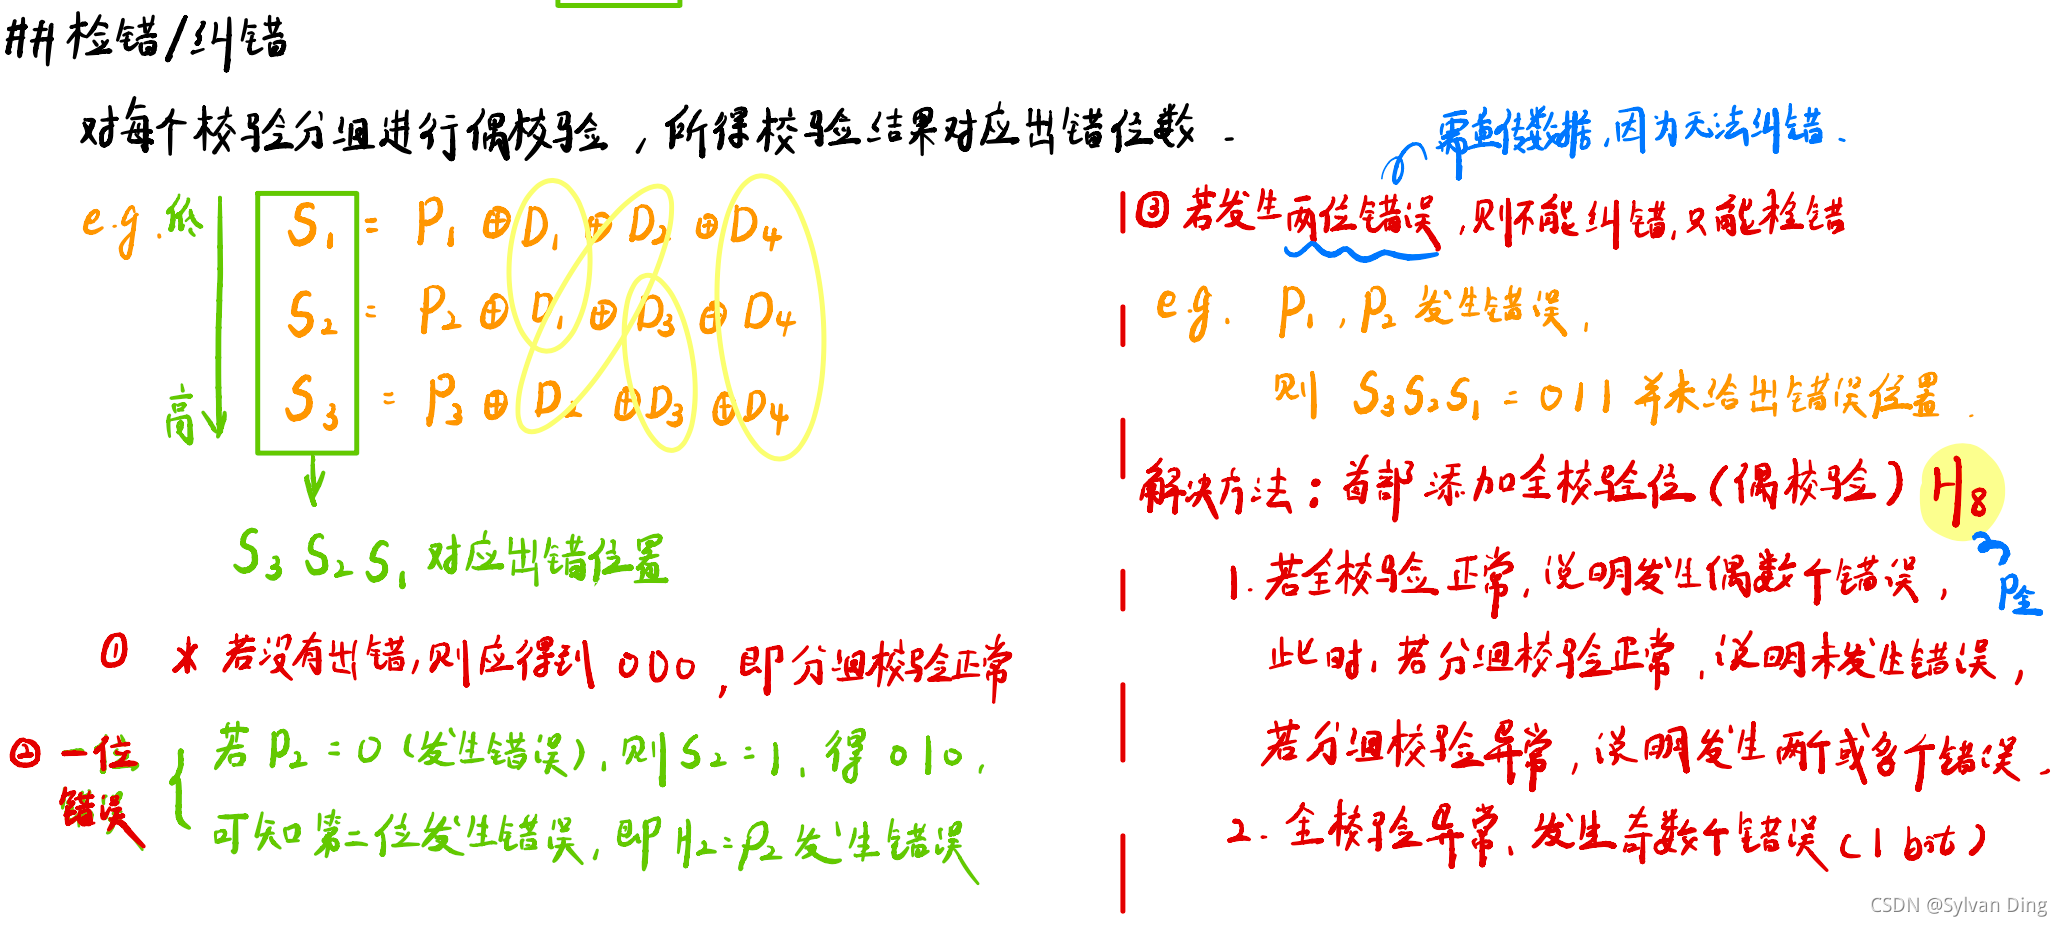 ## 检错/纠错
对每个校验分组进行偶校验，所得校验结果对应出错位数.
e.g. 低
高
S₁ = P₁ ⊕ D₁ ⊕ D₂ ⊕ D₄
S₂ = P₂ ⊕ D₁ ⊕ D₃ ⊕ D₄
S₃ = P₃ ⊕ D₂ ⊕ D₃ ⊕ D₄
S₃ S₂ S₁ 对应出错位置
① * 若没有出错,则应得到 000 , 即分组校验正常
② 一位错误
若 P₂ = 0 (发生错误), 则 S₂ = 1, 得 010,
可知第二位发生错误, 即 H₂=P₂ 发生错误
需重传数据,因为无法纠错.
③ 若发生两位错误,则不能纠错,只能检错
e.g. P₁, P₂ 发生错误,
则 S₃S₂S₁ = 011 并未给出错误位置.
解决方法: 首部添加全校验位(偶校验) H₈
P全
1. 若全校验正常, 说明发生偶数个错误,
此时, 若分组校验正常, 说明未发生错误,
若分组校验异常, 说明发生两个或多个错误.
2. 全校验异常, 发生奇数个错误 (1 bit)
CSDN @Sylvan Ding